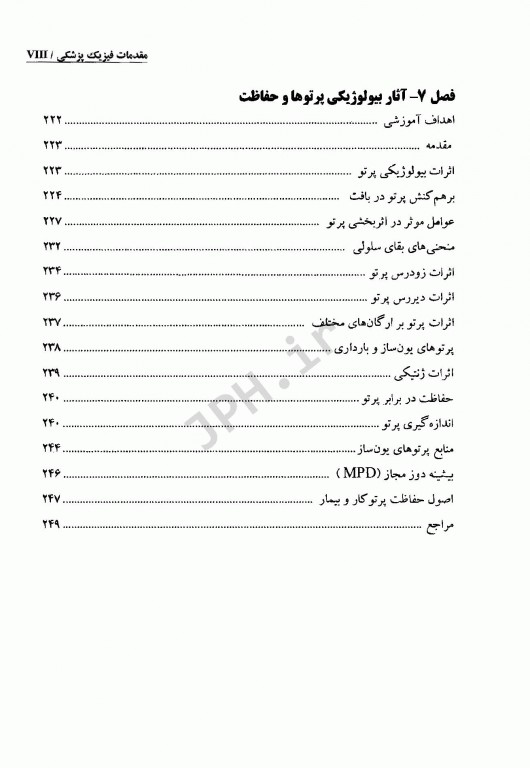 مقدمات فیزیک پزشکی / VIII
فصل ۷- آثار بیولوژیکی پرتوها و حفاظت
اهداف آموزشی ........ ۲۲۲
مقدمه ........ ۲۲۳
اثرات بیولوژیکی پرتو ........ ۲۲۳
برهم‌کنش پرتو در بافت ........ ۲۲۴
عوامل موثر در اثربخشی پرتو ........ ۲۲۷
منحنی‌های بقای سلولی ........ ۲۳۲
اثرات زودرس پرتو ........ ۲۳۴
اثرات دیررس پرتو ........ ۲۳۶
اثرات پرتو بر ارگان‌های مختلف ........ ۲۳۷
پرتوهای یون‌ساز و بارداری ........ ۲۳۸
اثرات ژنتیکی ........ ۲۳۹
حفاظت در برابر پرتو ........ ۲۴۰
اندازه‌گیری پرتو ........ ۲۴۰
منابع پرتوهای یون‌ساز ........ ۲۴۴
بیشینه دوز مجاز (MPD) ........ ۲۴۶
اصول حفاظت پرتوکار و بیمار ........ ۲۴۷
مراجع ........ ۲۴۹
JPH.ir